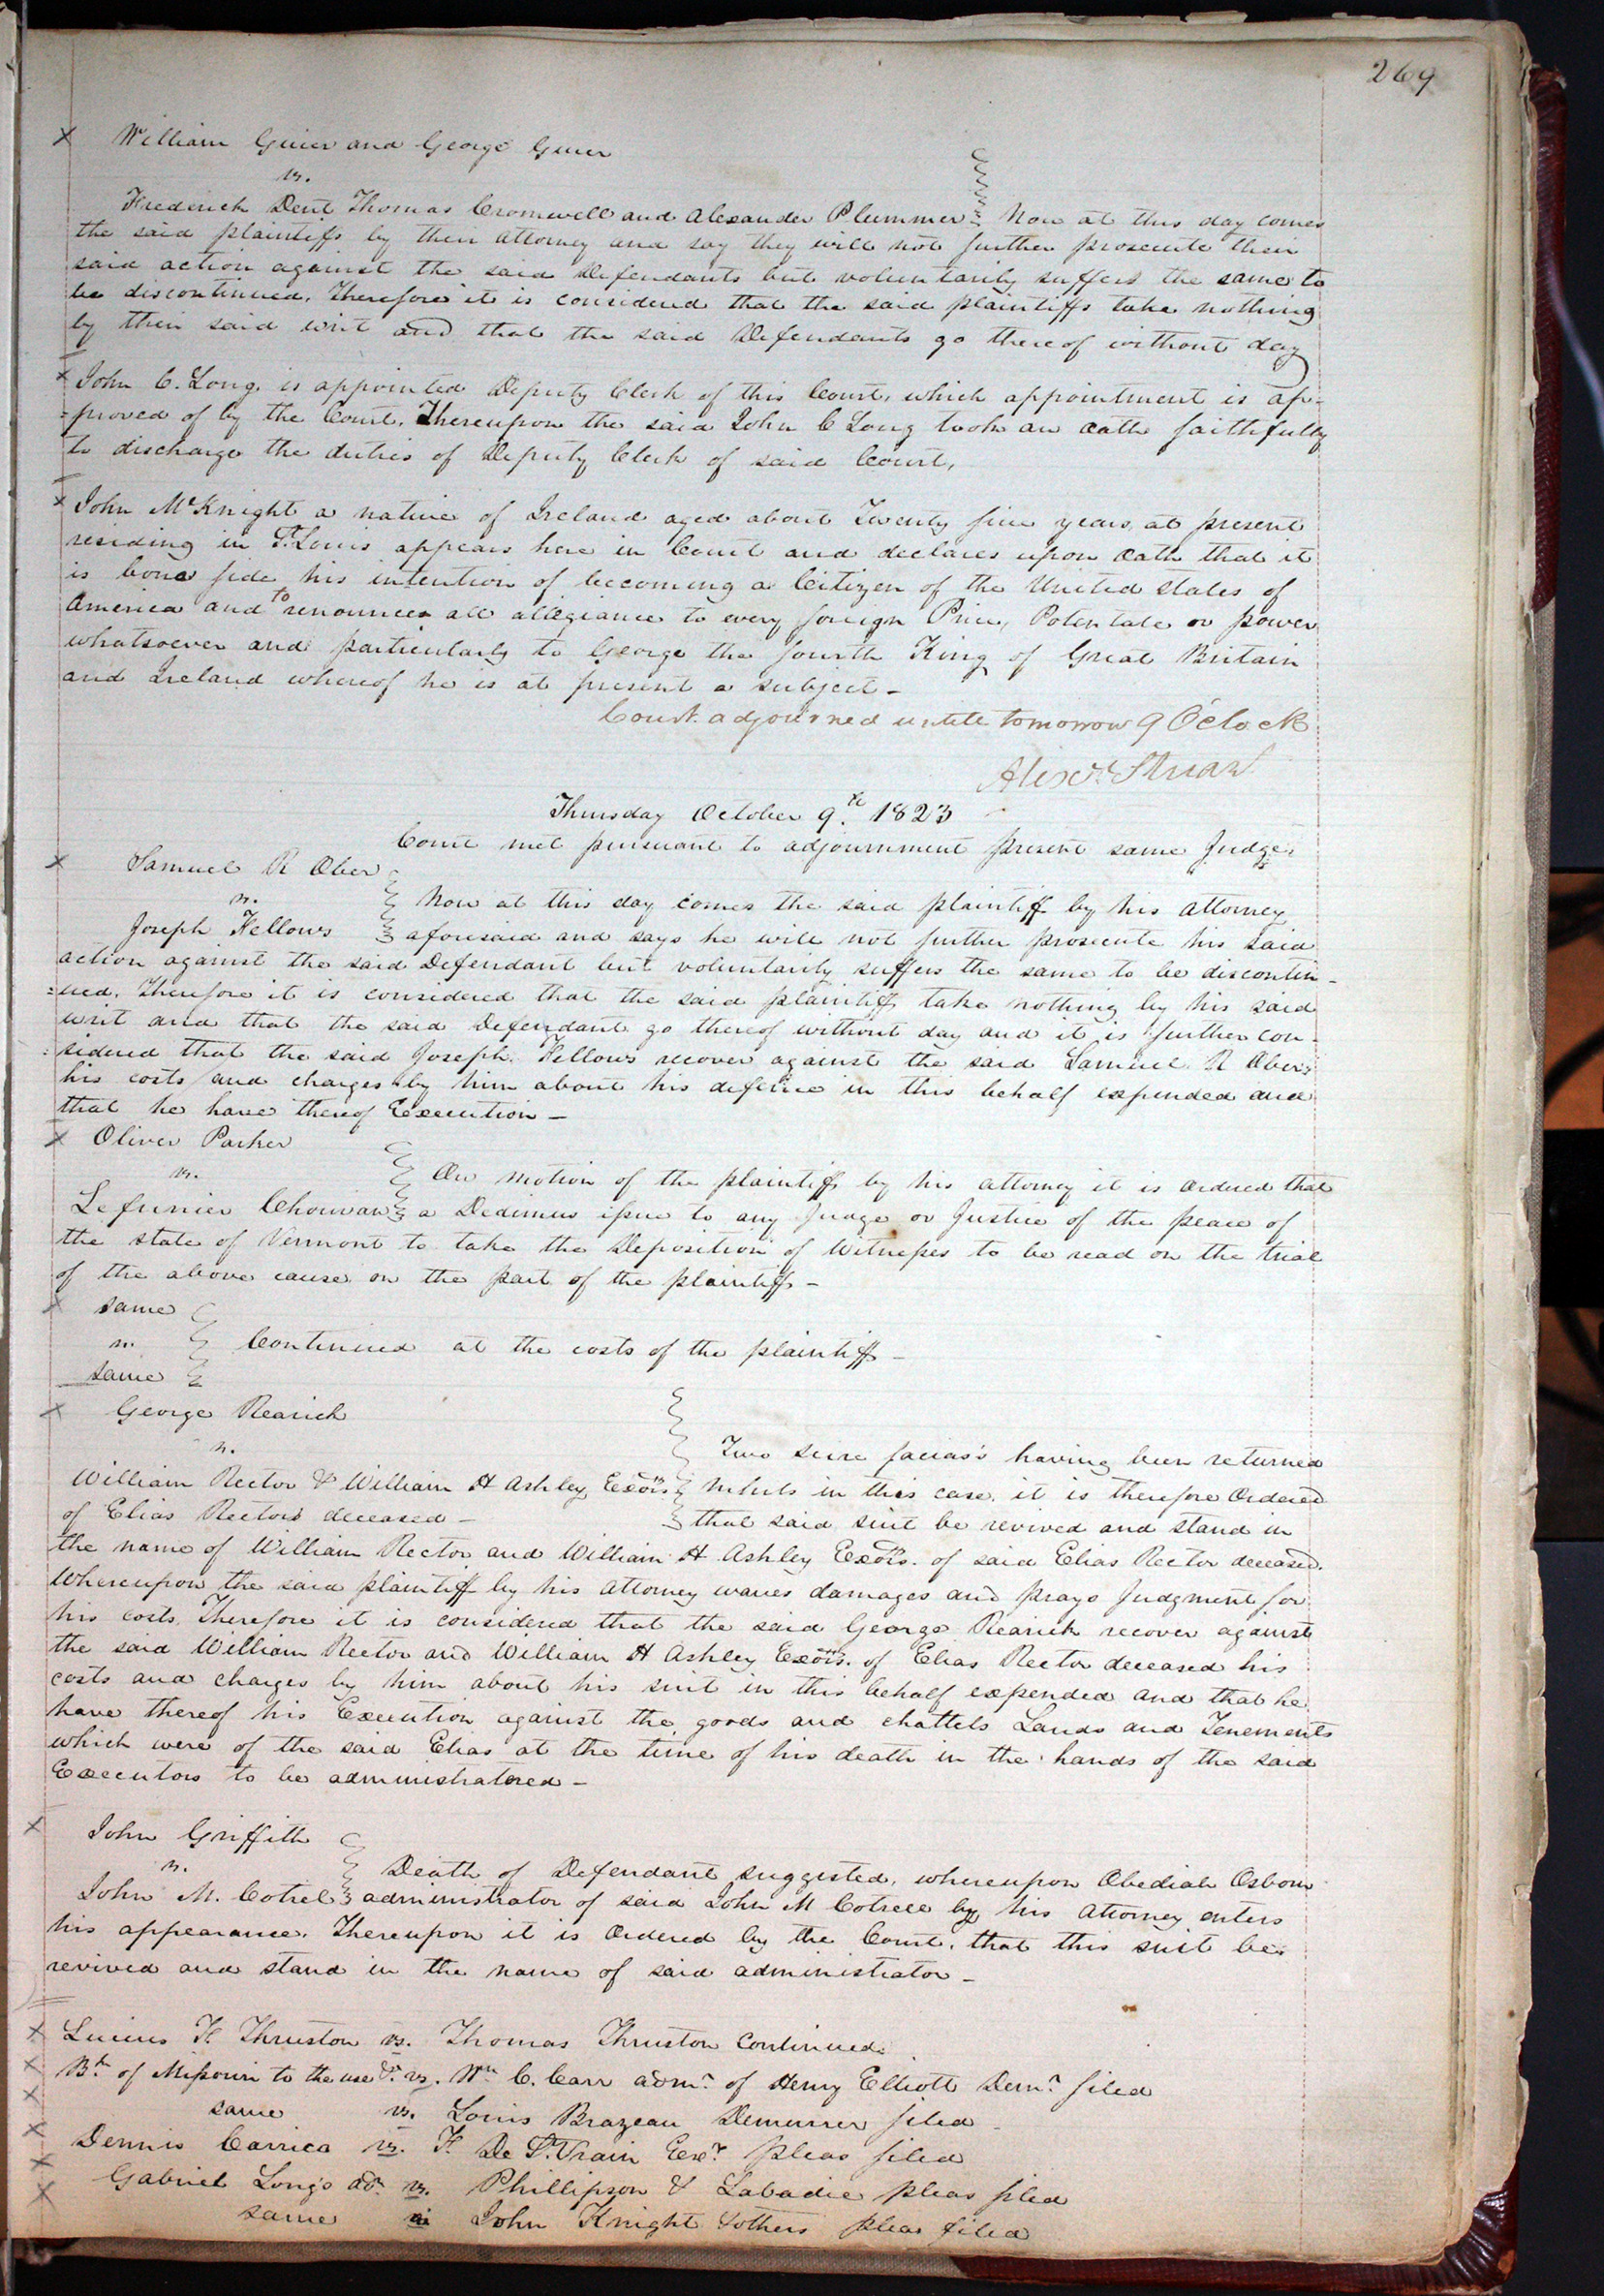 269
William Guier and George Guier
vs.
Frederick Dent Thomas Cromwell and Alexander Plummer Now at this day comes
the said plaintiffs by their attorney and say they will not further prosecute their
said action against the said Defendants but voluntarily suffers the same to
be discontinued. Therefore it is considered that the said plaintiffs take nothing
by their said writ and that the said Defendants go thereof without day
John C. Long is appointed Deputy Clerk of this Court, which appointment is ap-
=proved of by the Court. Thereupon the said John C Long took an oath faithfully
to discharge the duties of Deputy Clerk of said Court,
John McKnight a native of Ireland aged about Twenty five years, at present
residing in St. Louis appears here in Court and declares upon oath that it
is bona fide his intention of becoming a Citizen of the United States of
America and to renounce all allegiance to every foreign Prince, Potentate or power
whatsoever and particularly to George the fourth King of Great Britain
and Ireland whereof he is at present a subject -
Court adjourned untill tomorrow 9 O'Clock
Alexr. Stuart
Thursday October 9th. 1823
Court met pursuant to adjournment present same Judge.
Samuel R Ober
vs.
Now at this day comes the said plaintiff by his attorney
Joseph Fellows aforesaid and says he will not further prosecute his said
action against the said Defendant but voluntarily suffers the same to be discontin-
=ued. Therefore it is considered that the said plaintiff take nothing by his said
writ and that the said Defendant go thereof without day and it is further con-
=sidered that the said Joseph Fellows recover against the said Samuel R Ober,
his costs and charges by him about his defence in this behalf expended and
that he have thereof Execution -
Oliver Parker
vs.
On motion of the plaintiff by his attorney it is ordered that
Chouvan a Dedimus issue to any Judge or Justice of the peace of
the state of Vermont to take the Deposition of Witnesses to be read on the trial
of the above cause on the part of the plaintiff -
same
vs. Continued at the costs of the plaintiff -
same
George Rearick
vs.
Two scire facias's having been returned
William Rector & William H Ashley Exors. nihils in this case, it is therefore Ordered
of Elias Rector deceased - that said suit be revived and stand in
the name of William Rector and William H Ashley Exors. of said Elias Rector deceased.
Whereupon the said plaintiff by his attorney waves damages and prays Judgment for
his costs. Therefore it is considered that the said George Rearick recover against
the said William Rector and William H Ashley Exors. of Elias Rector deceased his
costs and charges by him about his suit in this behalf expended and that he
have thereof his Execution against the goods and chattels Lands and Tenements
which were of the said Elias at the time of his death in the hands of the said
Executors to be administratored -
John Griffith
vs.
Death of Defendant suggested, whereupon Obediah Osborn
John M. Cotrel administrator of said John M Cotrell by his attorney enters
his appearance. Thereupon it is Ordered by the Court, that this suit be
revived and stand in the name of said administrator -
Lucius F. Thruston vs. Thomas Thruston Continued.
Bk. of Missouri to the use &c. vs. Wm C. Carr admr. of Henry Elliott Demr. filed
same vs. Louis Brazeau Demurrer filed
Dennis Carrico vs. F. De St. Vrain Exr. pleas filed
Gabriel Long's adr. vs. Phillipson & Labadie pleas filed
same vs John Knight & others pleas filed